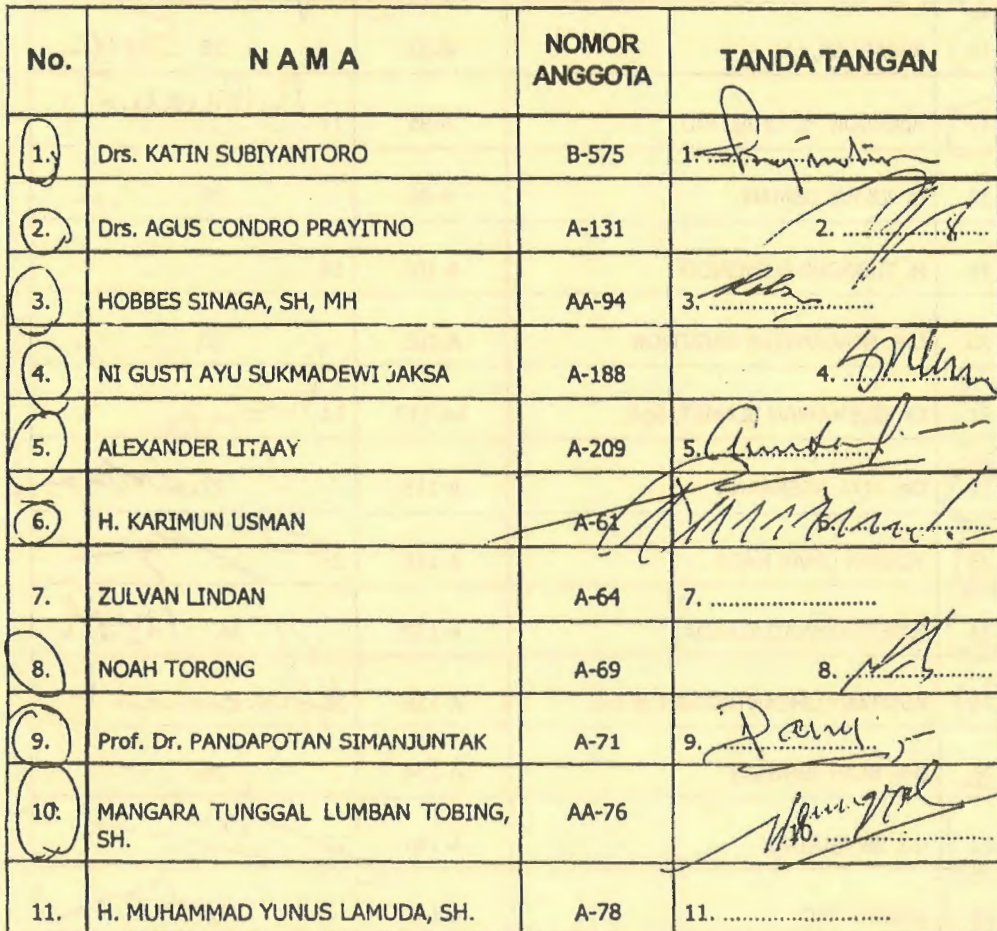 No. N A M A NOMOR ANGGOTA TANDA TANGAN
1. Drs. KATIN SUBIYANTORO B-575 1.
2. Drs. AGUS CONDRO PRAYITNO A-131 2. ....................
3. HOBBES SINAGA, SH, MH AA-94 3. ....................
4. NI GUSTI AYU SUKMADEWI JAKSA A-188 4. ....................
5. ALEXANDER LITAAY A-209 5. ....................
6. H. KARIMUN USMAN A-61 6. ....................
7. ZULVAN LINDAN A-64 7. ....................
8. NOAH TORONG A-69 8. ....................
9. Prof. Dr. PANDAPOTAN SIMANJUNTAK A-71 9. ....................
10. MANGARA TUNGGAL LUMBAN TOBING, AA-76
SH. 10. ....................
11. H. MUHAMMAD YUNUS LAMUDA, SH. A-78 11. ....................